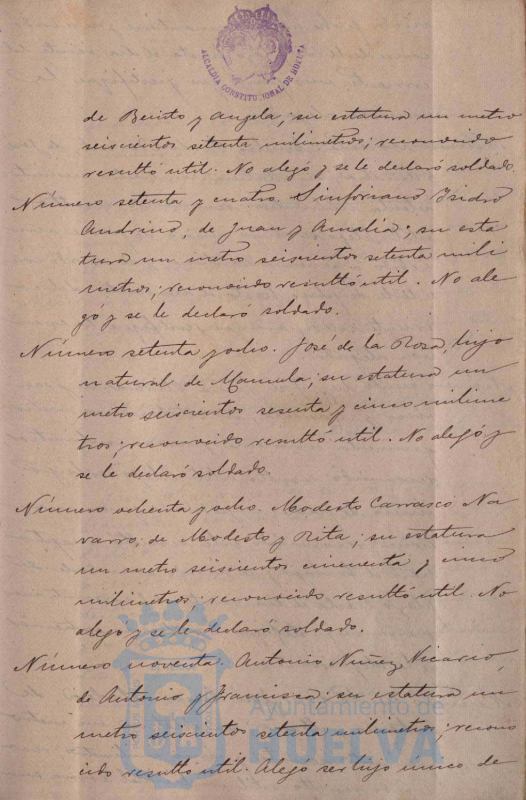 ALCALDIA CONSTITUCIONAL DE HUELVA
de Benito y Angela; su estatura un metro
seiscientos setenta milimetros; reconocido
resultó util. No alegó y se le declaró soldado.
Número setenta y cuatro. Sinforiano Isidro
Andrino, de Juan y Amalia; su esta
tura un metro seiscientos setenta mili
metros; reconocido resultó util. No ale
gó y se le declaró soldado.
Número setenta y ocho. José de la Rosa, hijo
natural de Manuela; su estatura un
metro seiscientos sesenta y cinco milime
tros; reconocido resultó util. No alegó y
se le declaró soldado.
Número ochenta y ocho. Modesto Carrasco Na
varro, de Modesto y Rita; su estatura
un metro seiscientos cincuenta y cinco
milimetros; reconocido resultó util. No
alegó y se le declaró soldado.
Número noventa. Antonio Nuñez Nicario,
de Antonio y Francisca; su estatura un
metro seiscientos setenta milimetros; recono
cido resultó util. Alegó ser hijo unico de
Ayuntamiento de
HUELVA